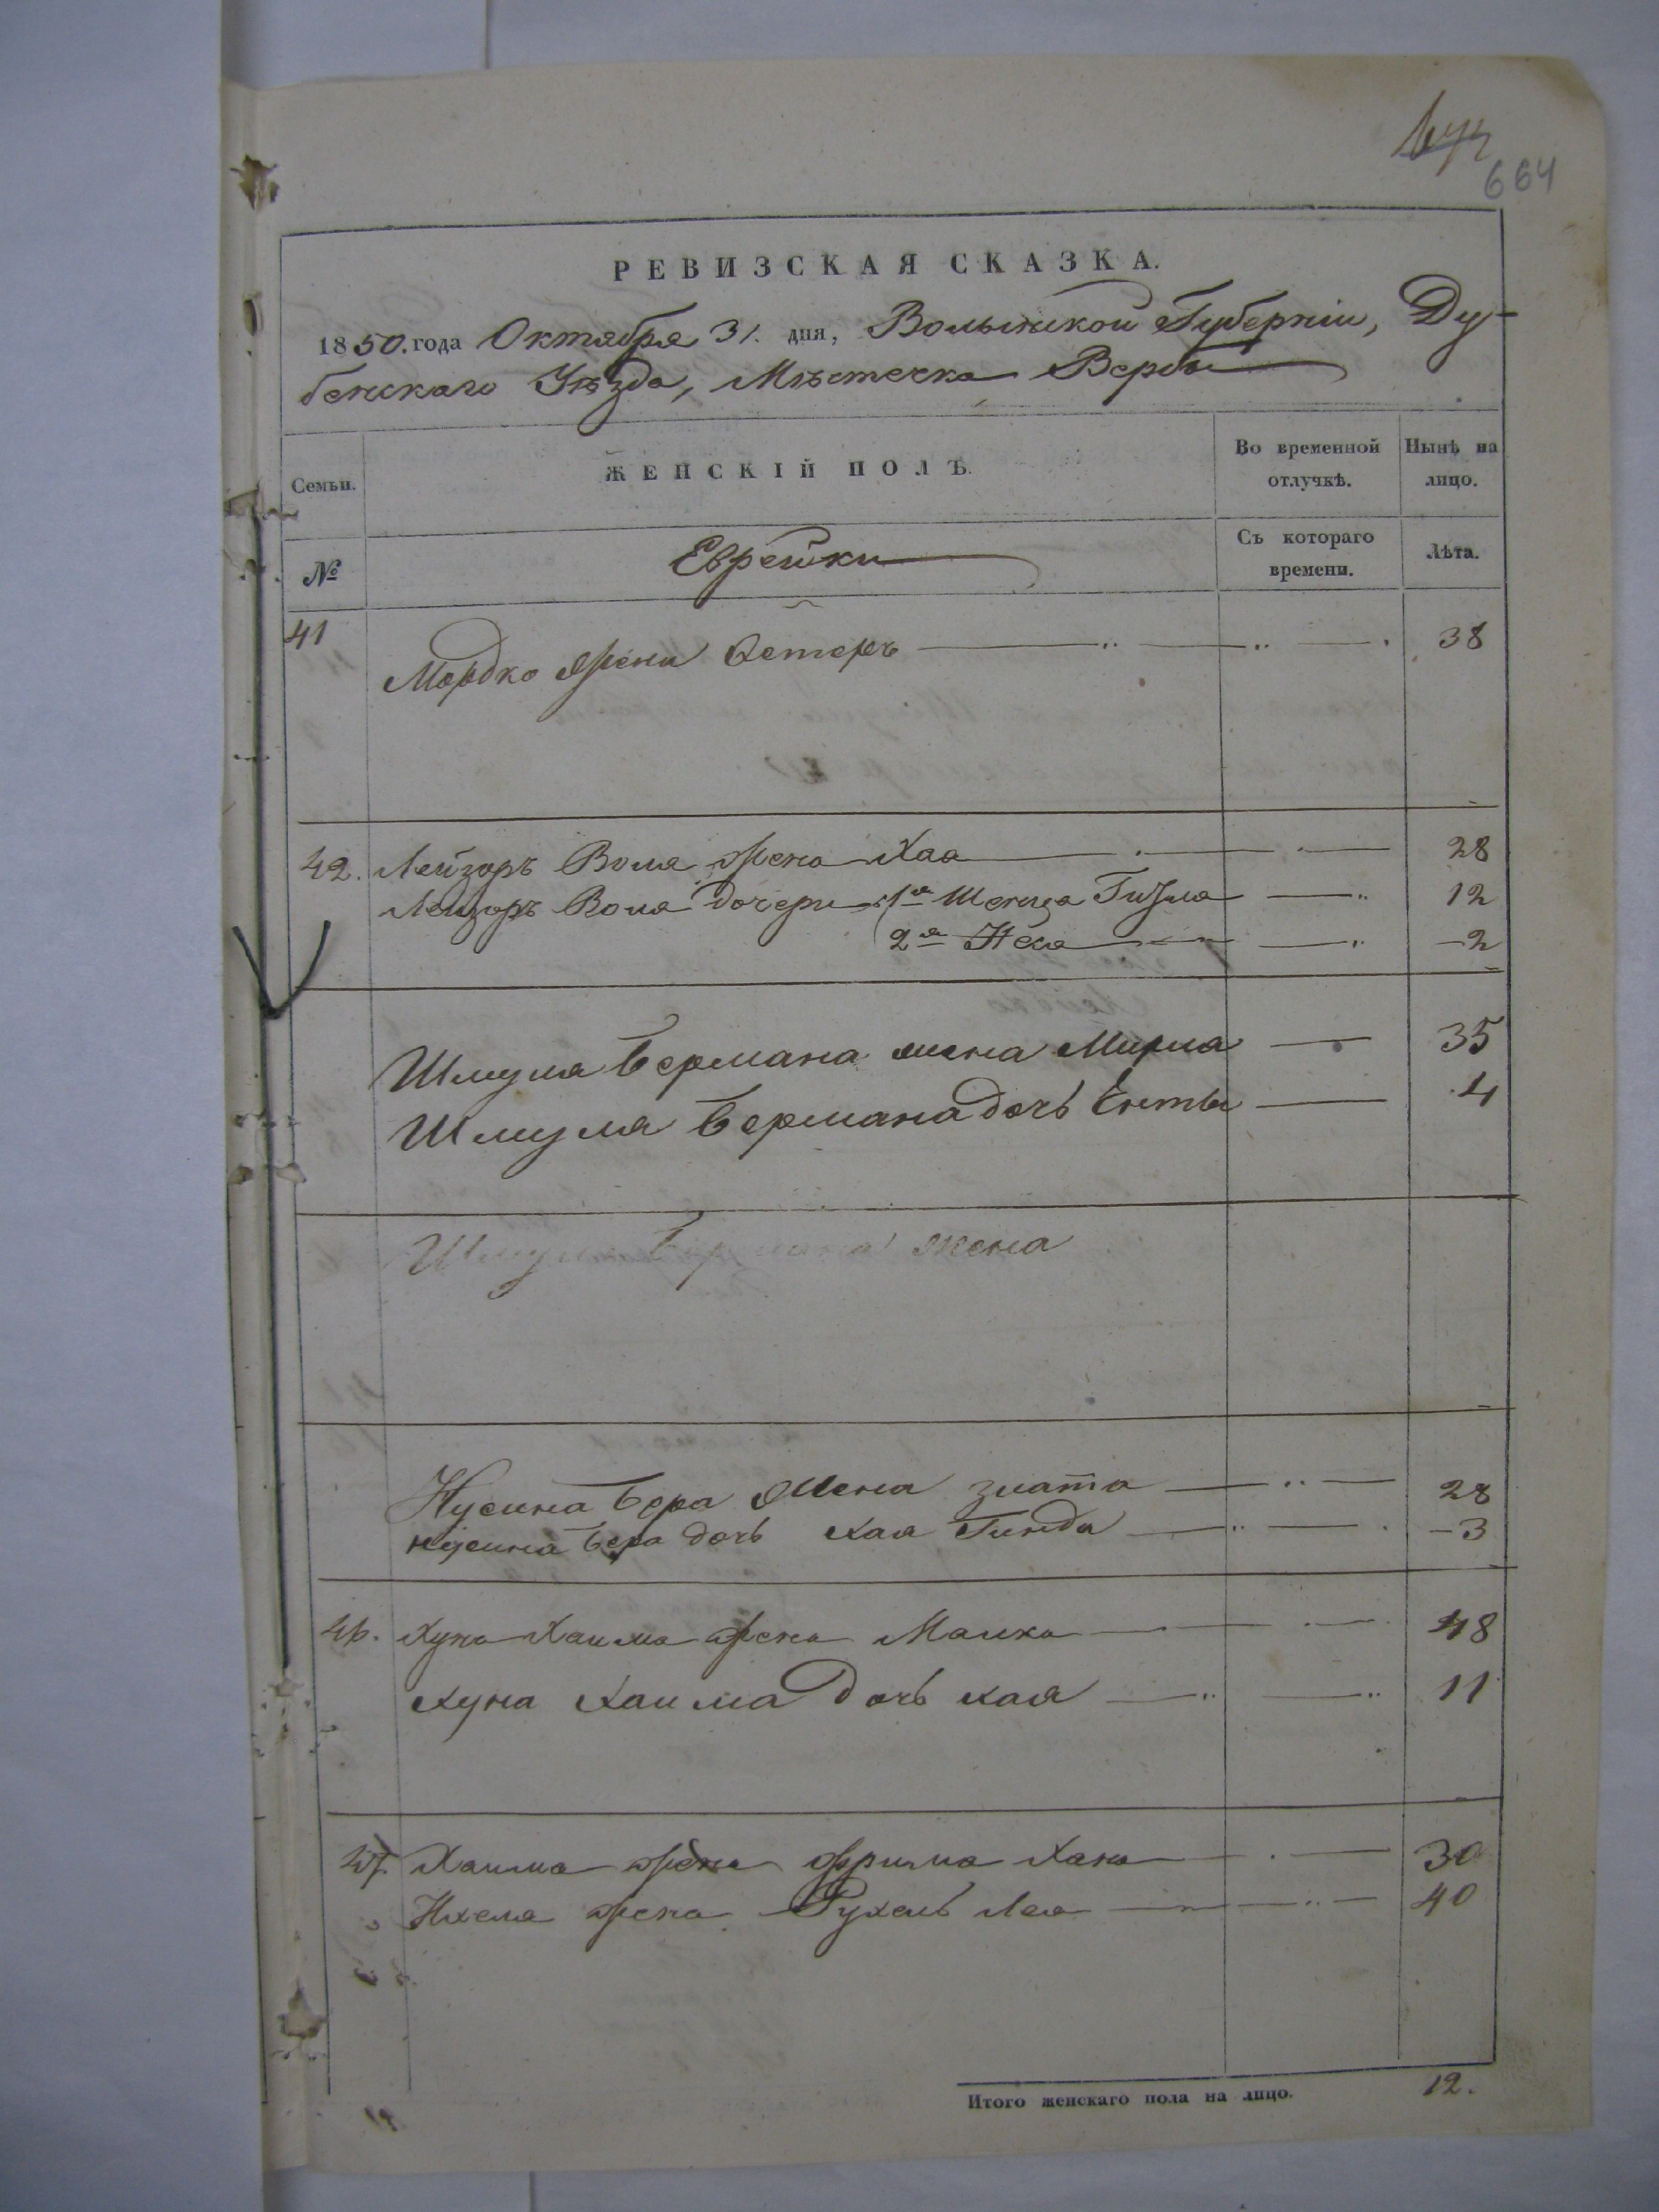 664
РЕВИЗСКАЯ СКАЗКА.
1850. года Октября 31. дня, Волынской Губерніи, Ду-
бенскаго Уѣзда, Мѣстечка Вербы
Семьи.
ЖЕНСКІЙ ПОЛЪ.
Во временной отлучкѣ.
Нынѣ на лицо.
№
Еврейки
Съ котораго времени.
Лѣта.
41 Мордко жена Естеръ 38
42. Лейзоръ Вола жена Хая 28
Лейзоръ Вола дочери 1я Гитля 12
2я 2
Шмуля Бермана жена Мирля 35
Шмуля Бермана дочь Ента 4
Шмуля Бермана жена
Нусина Бера жена Злата 28
Нусина Бера дочь Хая Гинда 3
46. Хуна Хаима жена Малка 48
Хуна Хаима дочь Хая 11
47. Хаима жена Фрима Хана 30
жена Рухель Лея 40
Итого женскаго пола на лицо. 12.